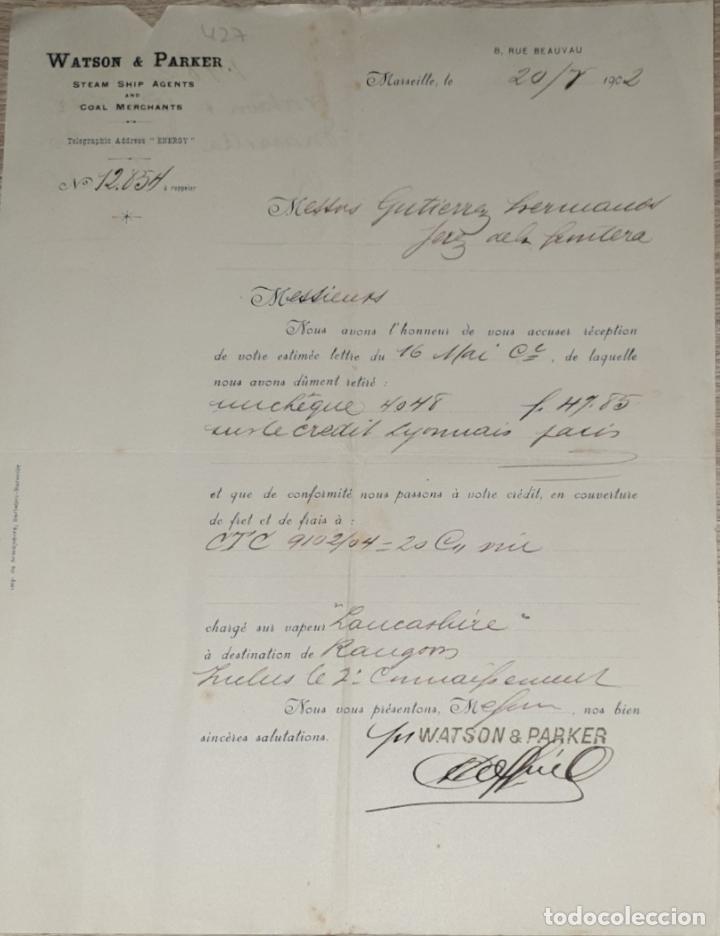 427
WATSON & PARKER.
STEAM SHIP AGENTS
AND
COAL MERCHANTS
Telegraphic Address "ENERGY"
No 12.854 à rappeler
8, RUE BEAUVAU
Marseille, le 20/5 1902
Messrs Gutierrez hermanos
Jerez de la frontera
Messieurs
Nous avons l'honneur de vous accuser réception
de votre estimée lettre du 16 Mai Ct, de laquelle
nous avons dûment retiré :
un chèque 4048 f. 47.85
sur le crédit Lyonnais paris
et que de conformité nous passons à votre crédit, en couverture
de fret et de frais à :
CTC 9102/04 = 20 Cs vin
chargé sur vapeur "Lancashire"
à destination de Rangoon
Inclus le 2e Connaissement
Nous vous présentons, Messieurs, nos bien
sincères salutations.
WATSON & PARKER
todocoleccion